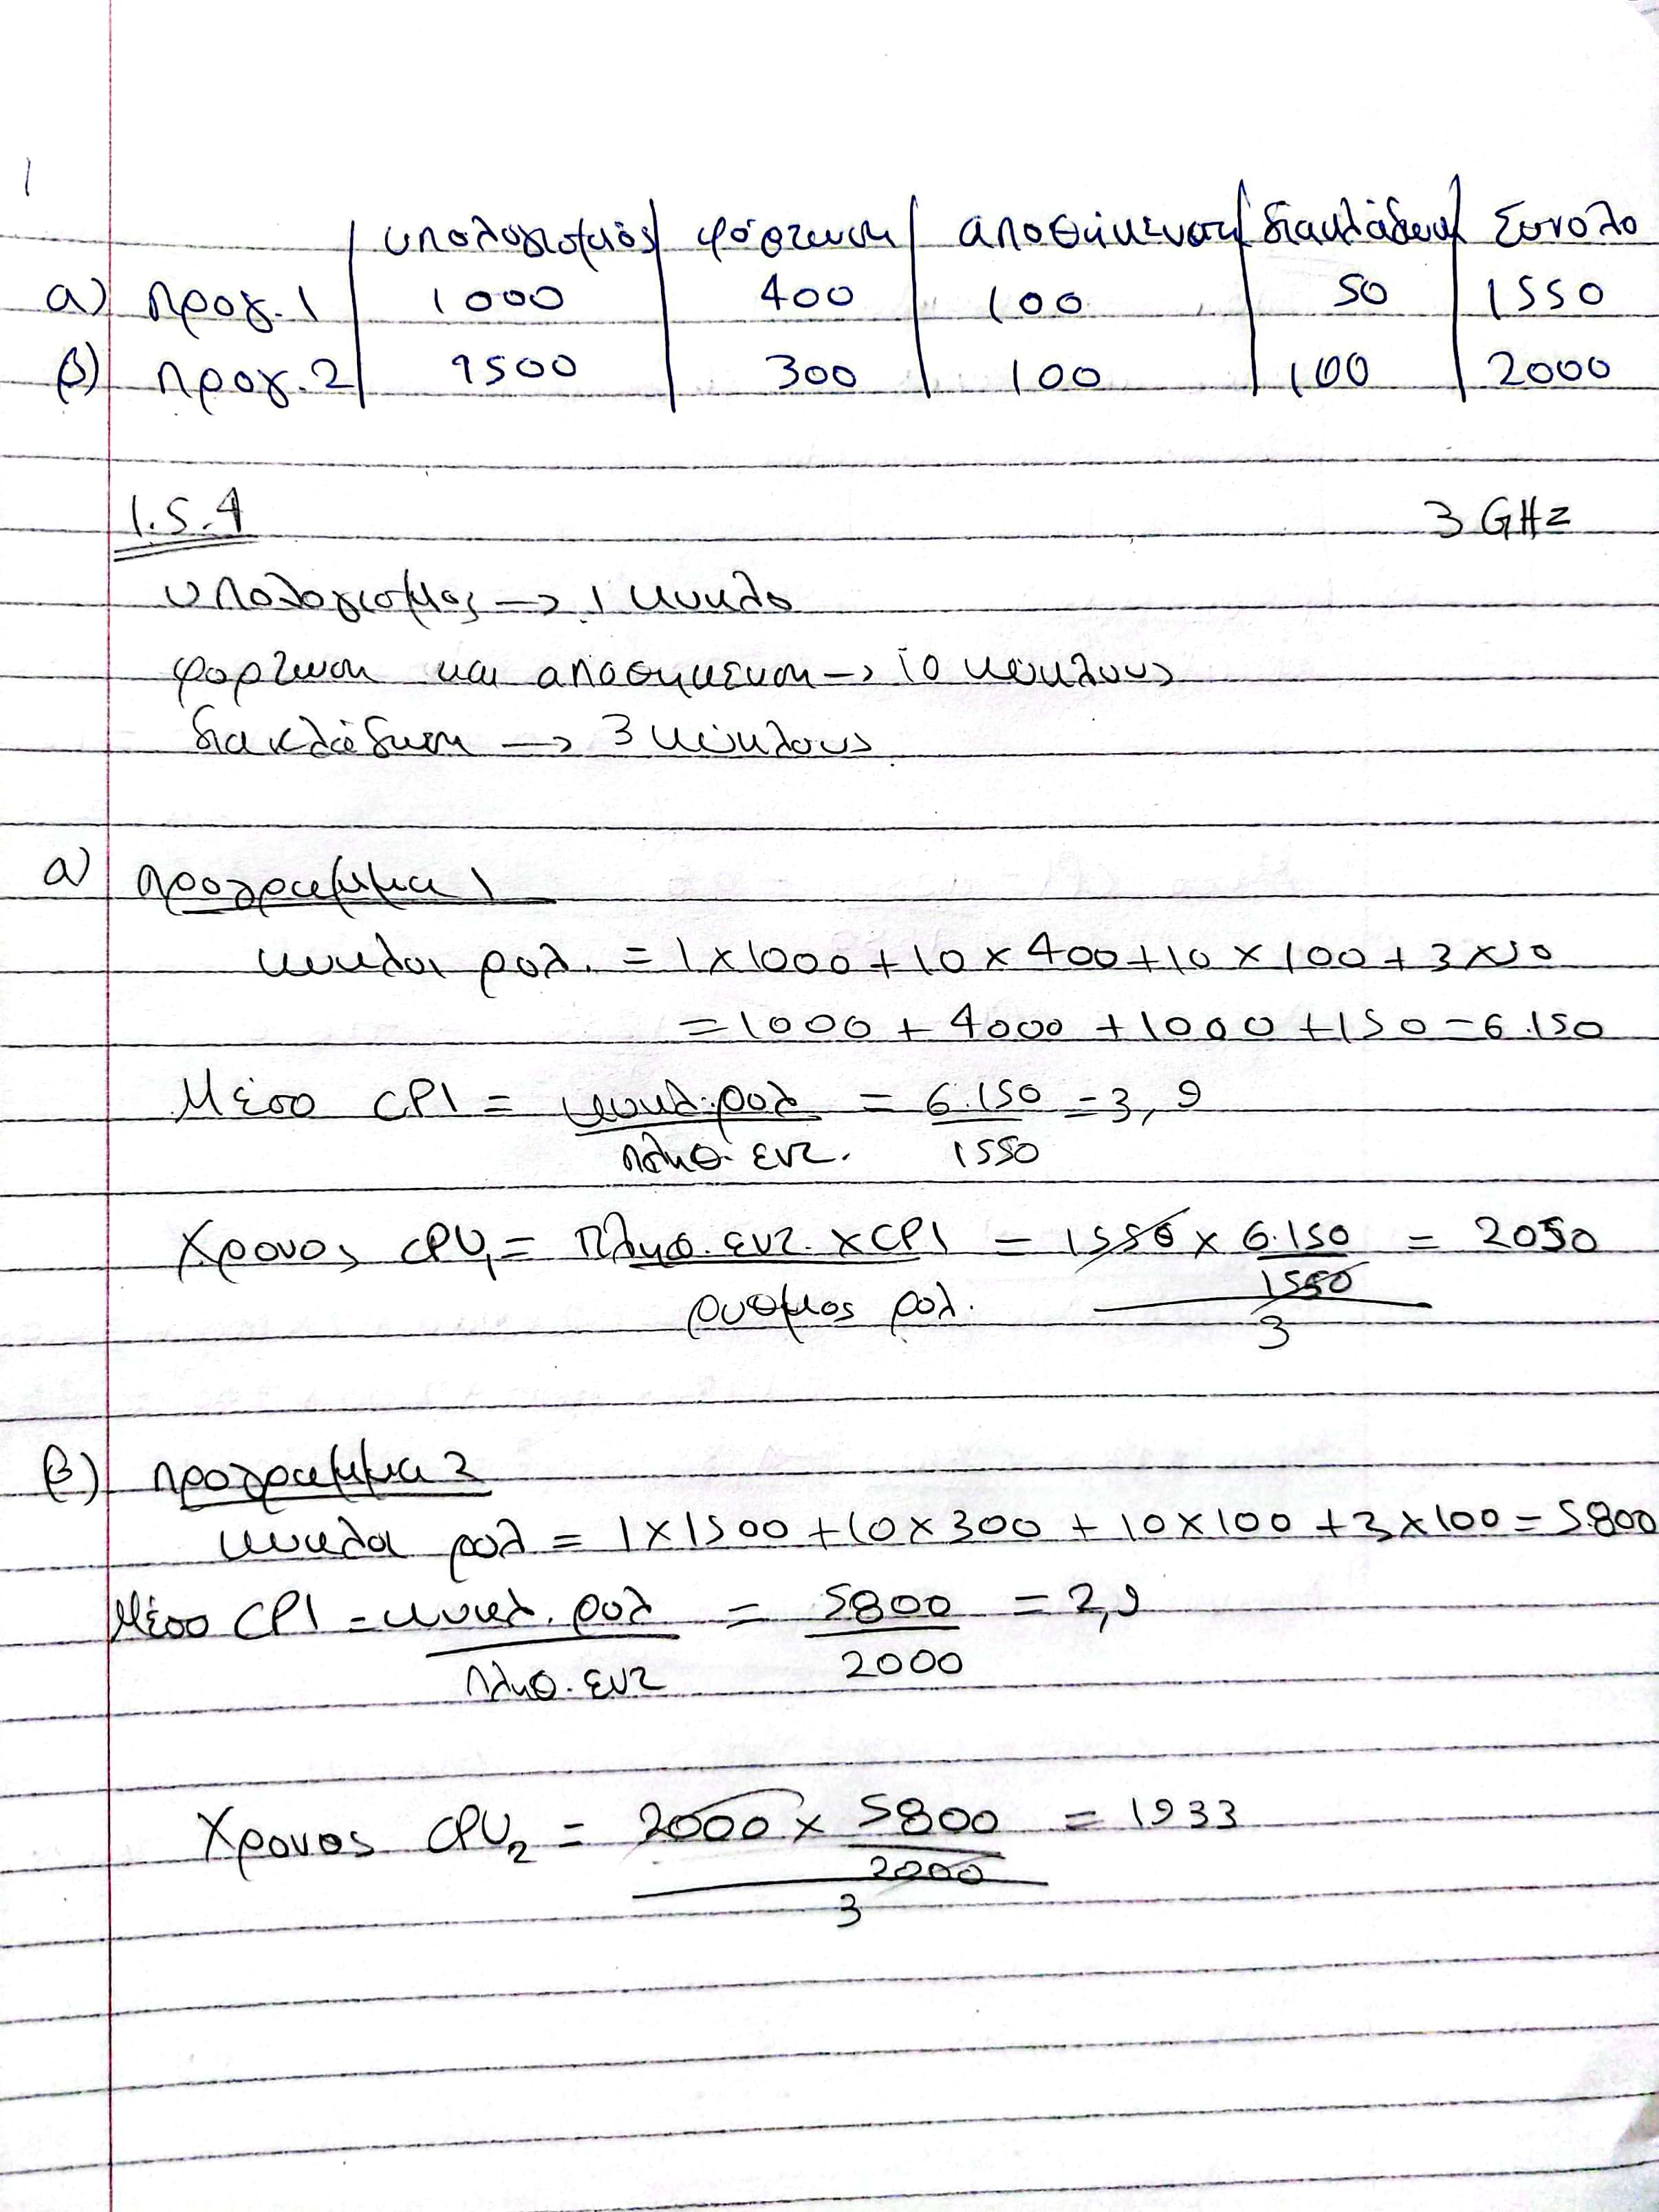 υπολογισμός φόρτωση αποθήκευση διακλάδωση Σύνολο
α) προγ. 1 1000 400 100 50 1550
β) προγ. 2 1500 300 100 100 2000
1.5.4 3 GHz
υπολογισμος → 1 κυκλο
φορτωση και αποθηκευση → 10 κύκλους
διακλάδωση → 3 κύκλους
α) προγραμμα 1
κυκλοι ρολ. = 1 x 1000 + 10 x 400 + 10 x 100 + 3 x 50
= 1000 + 4000 + 1000 + 150 = 6.150
Μέσο CPI = κυκλ. ρολ. / πληθ. εντ. = 6.150 / 1550 = 3,9
Χρονος CPU1 = πληθ. εντ. x CPI / ρυθμος ρολ. = 1550 x 6.150 / 1550 / 3 = 2050
β) προγραμμα 2
κυκλοι ρολ = 1 x 1500 + 10 x 300 + 10 x 100 + 3 x 100 = 5800
Μέσο CPI = κυκλ. ρολ / πληθ. εντ = 5800 / 2000 = 2,9
Χρονος CPU2 = 2000 x 5800 / 2000 / 3 = 1933